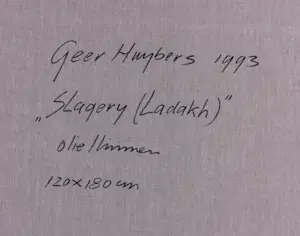 Geer Huybers 1993
„Slagery (Ladakh)"
olie/linnen
120x180 cm